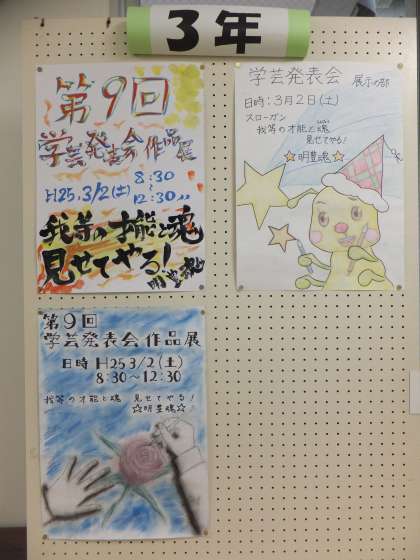 3年
第9回
学芸発表会作品展
8:30
~
H25.3/2(土)
12:30
我等の才能と魂
見せてやる!
明豊魂
学芸発表会 展示の部
日時:3月2日(土)
スローガン
我等の才能と魂
見せてやる!
☆明豊魂☆
第9回
学芸発表会作品展
日時 H25 3/2(土)
8:30~12:30
我等の才能と魂 見せてやる!
☆明豊魂☆